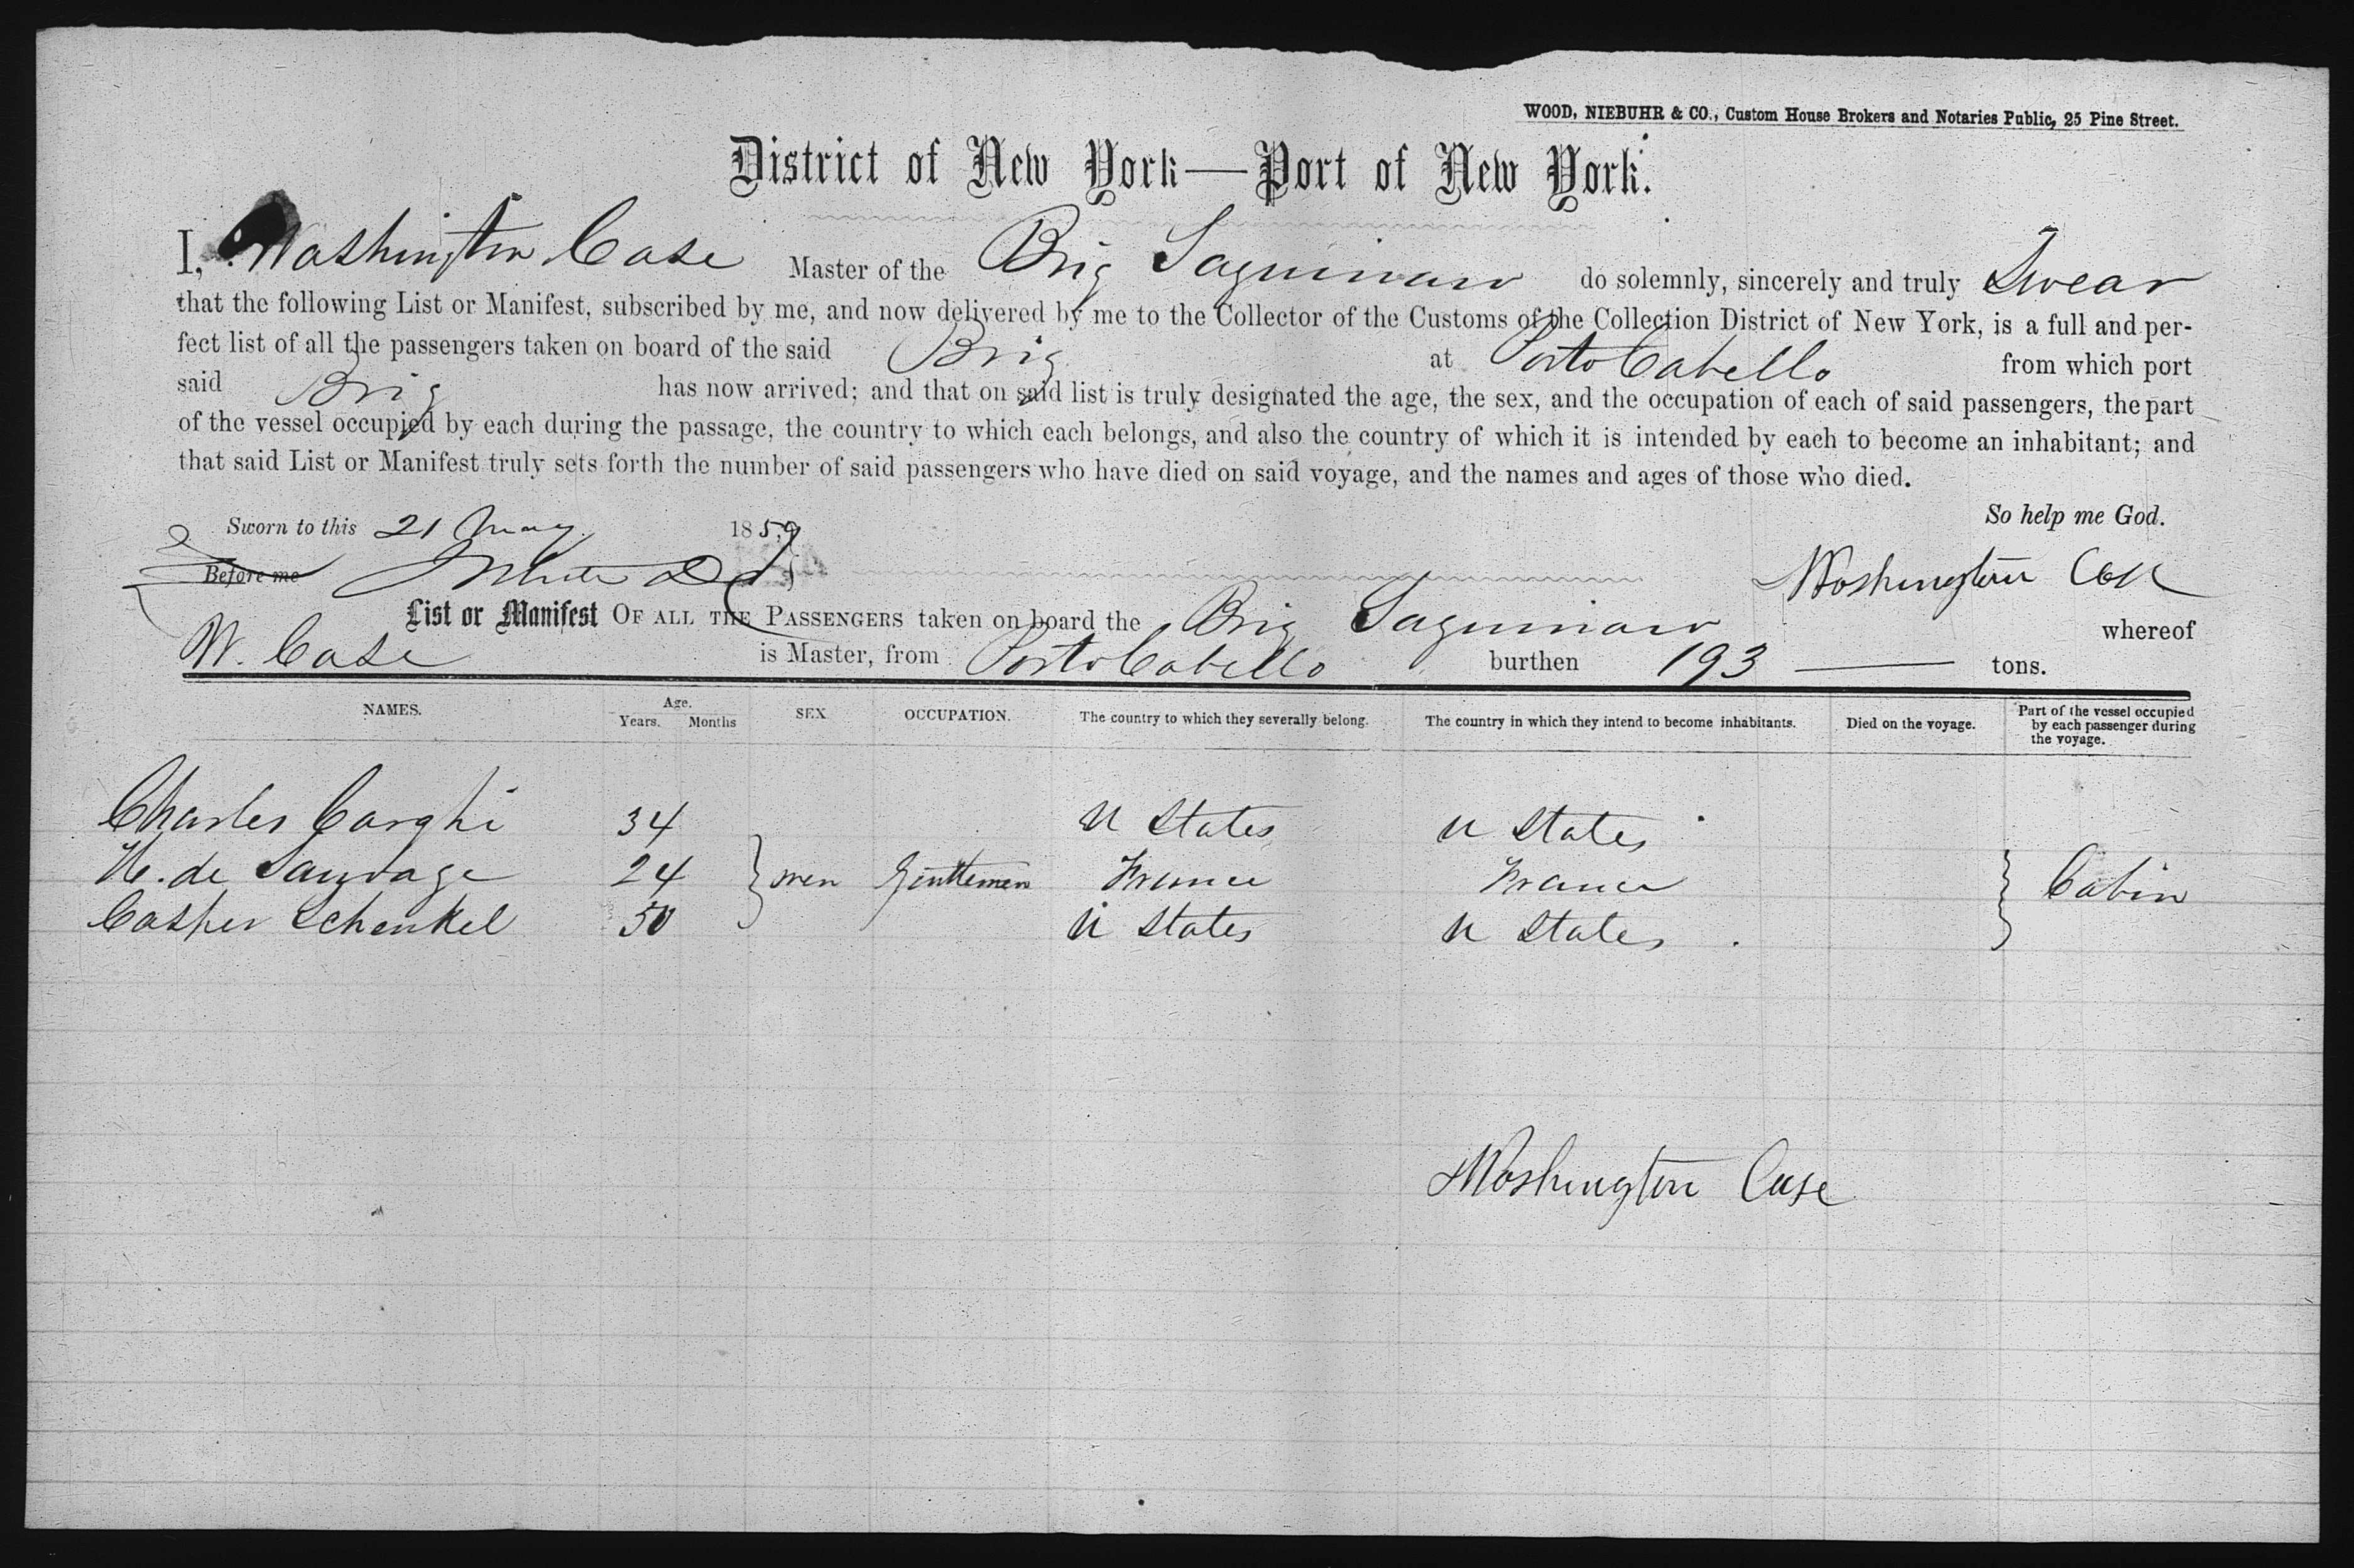 WOOD, NIEBUHR & CO., Custom House Brokers and Notaries Public, 25 Pine Street.
District of New York—Port of New York.
I, Washington Case Master of the Brig Saguinaw do solemnly, sincerely and truly Swear
that the following List or Manifest, subscribed by me, and now delivered by me to the Collector of the Customs of the Collection District of New York, is a full and per-
fect list of all the passengers taken on board of the said Brig at Porto Cabello from which port
said Brig has now arrived; and that on said list is truly designated the age, the sex, and the occupation of each of said passengers, the part
of the vessel occupied by each during the passage, the country to which each belongs, and also the country of which it is intended by each to become an inhabitant; and
that said List or Manifest truly sets forth the number of said passengers who have died on said voyage, and the names and ages of those who died.
So help me God.
Sworn to this 21 May 1859
Before me
Washington Case
List or Manifest OF ALL THE PASSENGERS taken on board the Brig Saguinaw whereof
W. Case is Master, from Porto Cabello burthen 193 tons.
NAMES. Age. Years. Months SEX OCCUPATION. The country to which they severally belong. The country in which they intend to become inhabitants. Died on the voyage. Part of the vessel occupied by each passenger during the voyage.
Charles Carghi 34 U States U States
de Sauvage 24 men Gentlemen France France Cabin
Casper Schenkel 50 U States U States
Washington Case